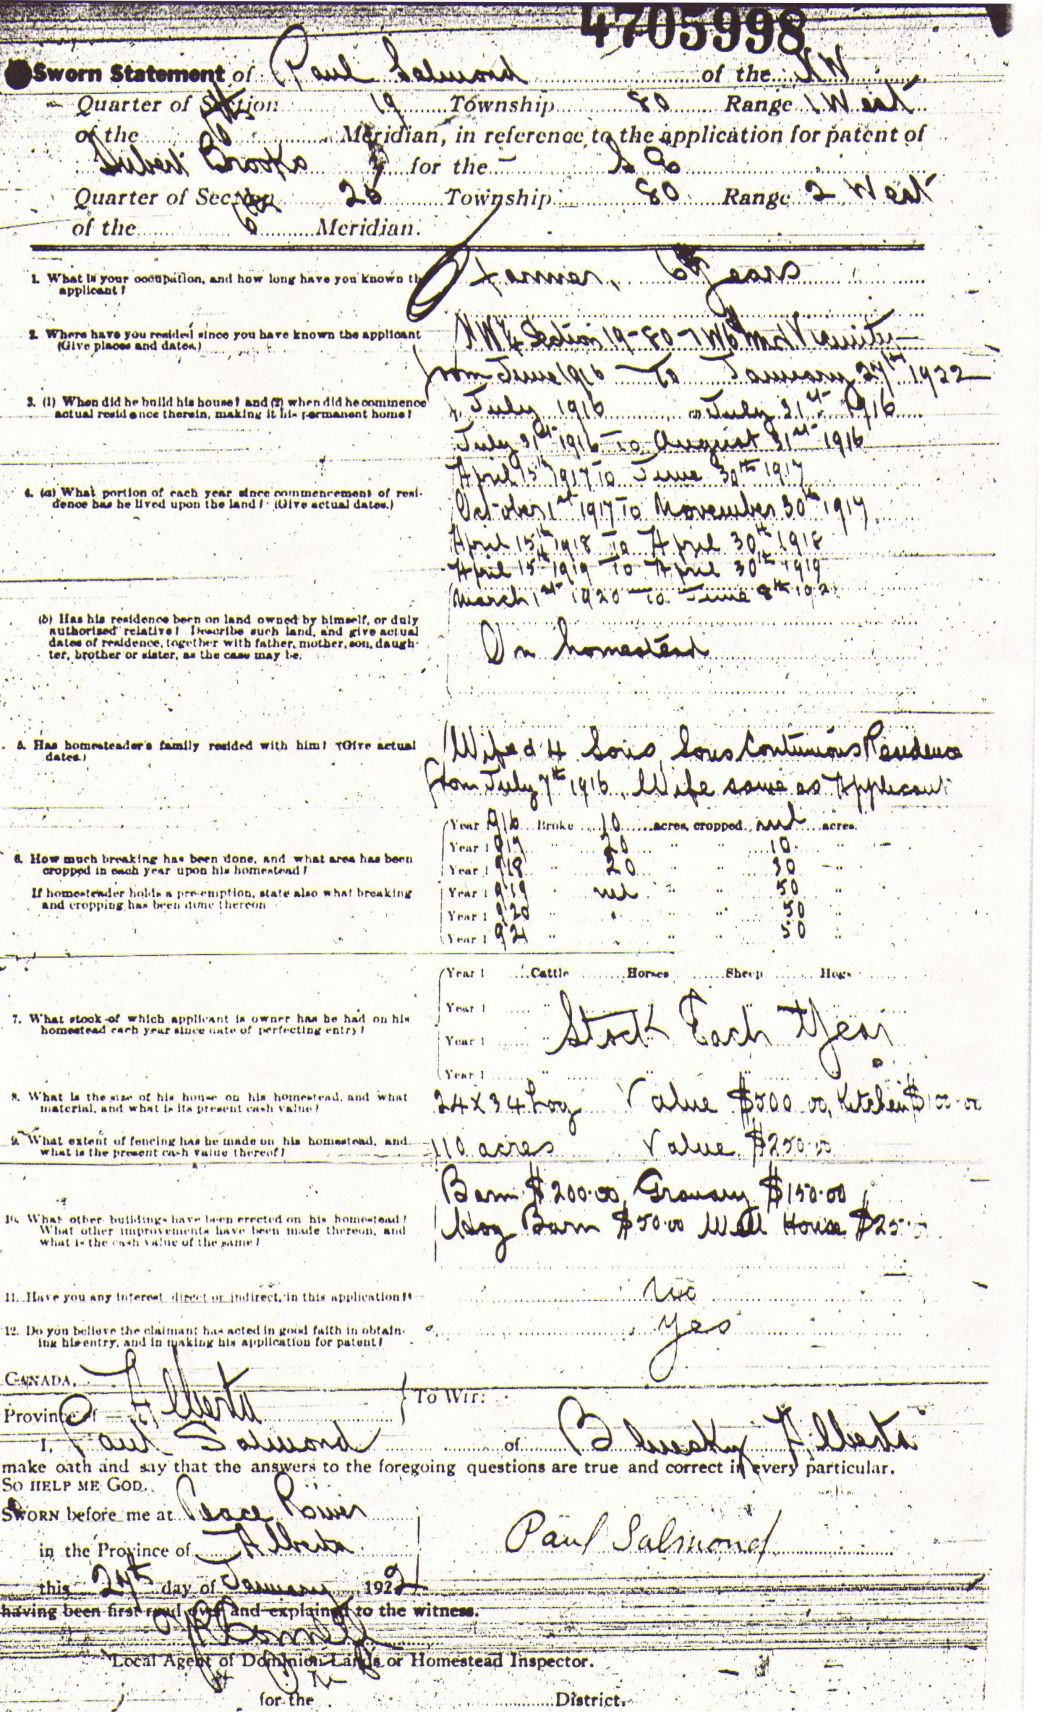 4705998
Sworn Statement of Paul Salmond of the NW
Quarter of Section 19 Township 80 Range 1 West
of the 6th Meridian, in reference to the application for patent of
Hubert Brooks for the S E
Quarter of Section 25 Township 80 Range 2 West
of the 6th Meridian.
1. What is your occupation, and how long have you known the
applicant?
Farmer, 6 Years
2. Where have you resided since you have known the applicant
(Give places and dates.)
NW¼ Section 19-80-1 W6 Md Vicinity
from June 1916 To January 24th 1922
3. (1) When did he build his house? and (2) when did he commence
actual residence therein, making it his permanent home?
1) July 1916 (2) July 31st 1916
4. (a) What portion of each year since commencement of resi-
dence has he lived upon the land? (Give actual dates.)
July 31st 1916 To August 31st 1916
April 15th 1917 To June 30th 1917
October 1st 1917 To November 30th 1917
April 15th 1918 To April 30th 1918
April 15th 1919 To April 30th 1919
March 1st 1920 To June 8th 192
(b) Has his residence been on land owned by himself, or duly
authorised relative? Describe such land, and give actual
dates of residence, together with father, mother, son, daugh-
ter, brother or sister, as the case may be.
On homestead
5. Has homesteader's family resided with him? (Give actual
dates.)
Wife & 4 Sons, Sons Continuous Residence
from July 7th 1916, Wife same as Applicant
6. How much breaking has been done, and what area has been
cropped in each year upon his homestead?
If homesteader holds a pre-emption, state also what breaking
and cropping has been done thereon
Year 1916 Broke 10 acres, cropped nil acres.
Year 1917 20 " " 10 "
Year 1918 20 " " 30 "
Year 1919 nil " " 50 "
Year 1920 " " " 50 "
Year 1921 " " 50 "
7. What stock of which applicant is owner has he had on his
homestead each year since date of perfecting entry?
Year 1 Cattle Horses Sheep Hogs
Year 1
Year 1 Stock Each Year
Year 1
8. What is the size of his house on his homestead, and what
material, and what is its present cash value?
24 x 34 Log Value $500.00, Kitchen $100.00
9. What extent of fencing has he made on his homestead, and
what is the present cash value thereof?
110 acres Value $250.00
10. What other buildings have been erected on his homestead?
What other improvements have been made thereon, and
what is the cash value of the same?
Barn $200.00, Granary $150.00,
Hog Barn $50.00 Well House $25.
11. Have you any interest, direct or indirect, in this application?
No
12. Do you believe the claimant has acted in good faith in obtain-
ing his entry, and in making his application for patent?
Yes
CANADA,
Province of Alberta } To Wit:
I, Paul Salmond of Bluesky Alberta
make oath and say that the answers to the foregoing questions are true and correct in every particular.
SO HELP ME GOD.
SWORN before me at Peace River
in the Province of Alberta
Paul Salmond
this 24th day of January 1922
having been first read over and explained to the witness.
Local Agent of Dominion Lands or Homestead Inspector.
for the District.